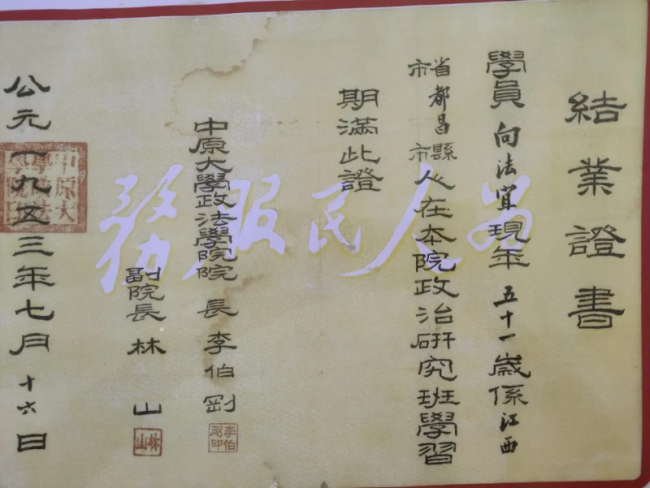 結業證書
學員向法宜現年五十一歲係江西
省市都昌縣市人在本院政治研究班學習
期滿此證
中原大學政法學院院長李伯剛
李伯剛印
副院長林山
林山
公元一九五三年七月十六日
為人民服務